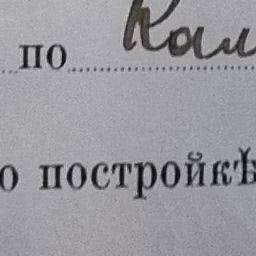 по Кал
о постройкѣ